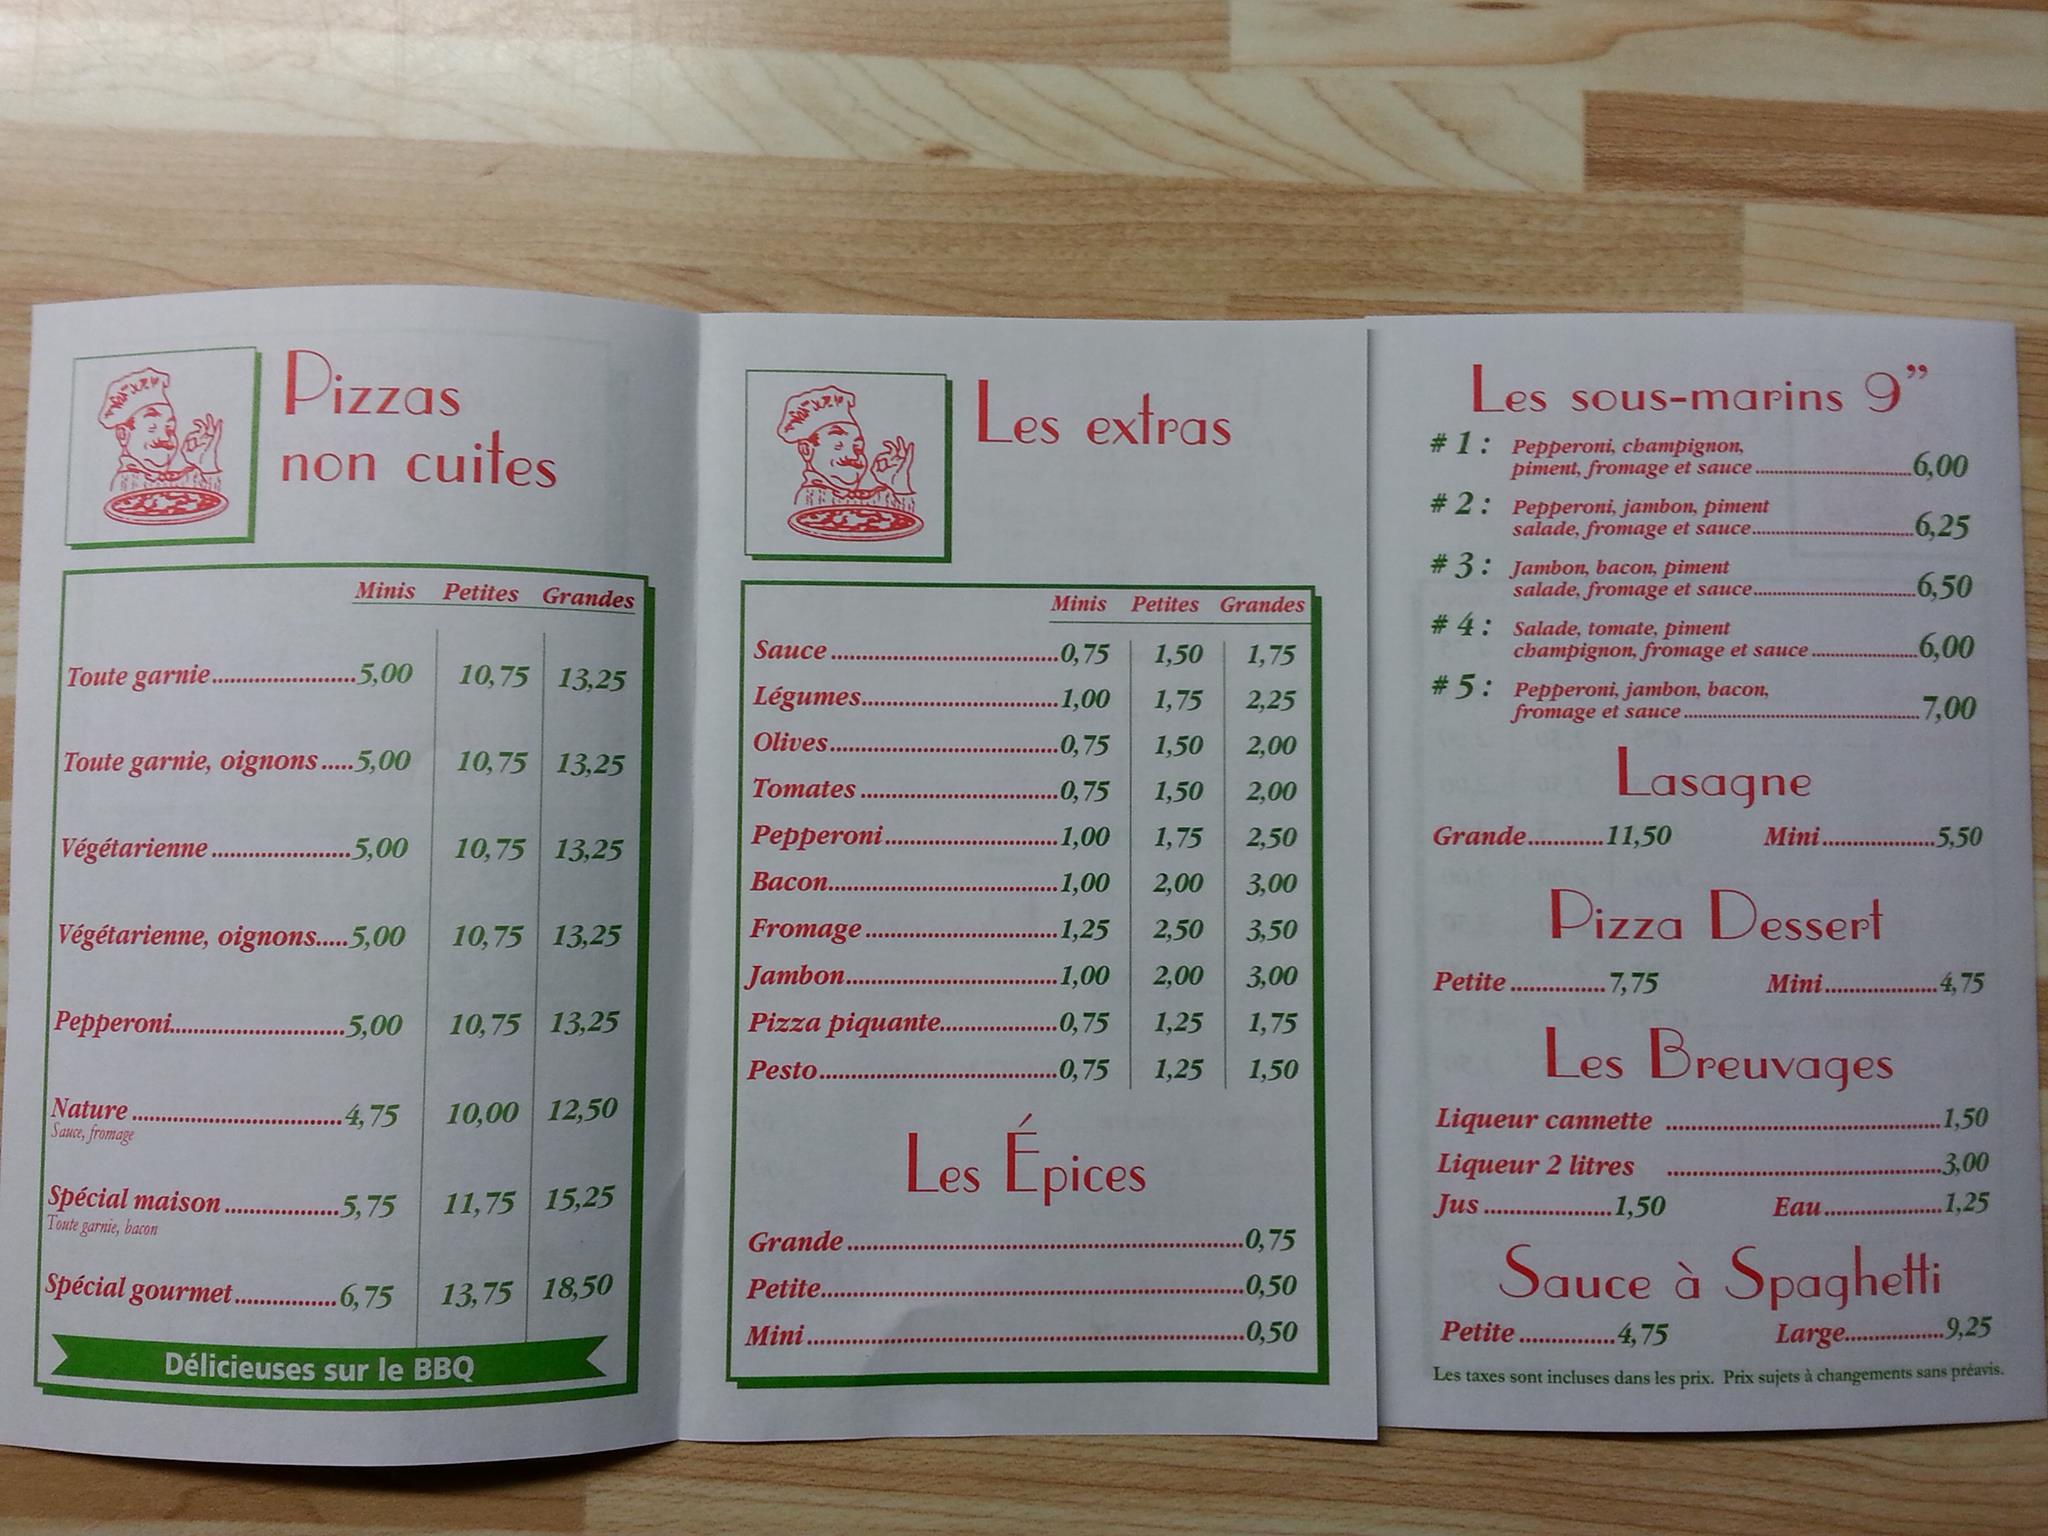 Pizzas
non cuites
Minis Petites Grandes
Toute garnie....................5,00 10,75 13,25
Toute garnie, oignons.....5,00 10,75 13,25
Végétarienne....................5,00 10,75 13,25
Végétarienne, oignons.....5,00 10,75 13,25
Pepperoni.........................5,00 10,75 13,25
Nature..............................4,75 10,00 12,50
Sauce, fromage
Spécial maison.................5,75 11,75 15,25
Toute garnie, bacon
Spécial gourmet...............6,75 13,75 18,50
Délicieuses sur le BBQ
Les extras
Minis Petites Grandes
Sauce.................................0,75 1,50 1,75
Légumes............................1,00 1,75 2,25
Olives.................................0,75 1,50 2,00
Tomates.............................0,75 1,50 2,00
Pepperoni.........................1,00 1,75 2,50
Bacon.................................1,00 2,00 3,00
Fromage............................1,25 2,50 3,50
Jambon..............................1,00 2,00 3,00
Pizza piquante.................0,75 1,25 1,75
Pesto..................................0,75 1,25 1,50
Les Épices
Grande.........................................................0,75
Petite............................................................0,50
Mini..............................................................0,50
Les sous-marins 9”
# 1 : Pepperoni, champignon,
piment, fromage et sauce..........................6,00
# 2 : Pepperoni, jambon, piment
salade, fromage et sauce...........................6,25
# 3 : Jambon, bacon, piment
salade, fromage et sauce...........................6,50
# 4 : Salade, tomate, piment
champignon, fromage et sauce.................6,00
# 5 : Pepperoni, jambon, bacon,
fromage et sauce.......................................7,00
Lasagne
Grande............11,50 Mini...................5,50
Pizza Dessert
Petite................7,75 Mini...................4,75
Les Breuvages
Liqueur cannette..............................................1,50
Liqueur 2 litres..............................................3,00
Jus.....................1,50 Eau....................1,25
Sauce à Spaghetti
Petite................4,75 Large.................9,25
Les taxes sont incluses dans les prix. Prix sujets à changements sans préavis.